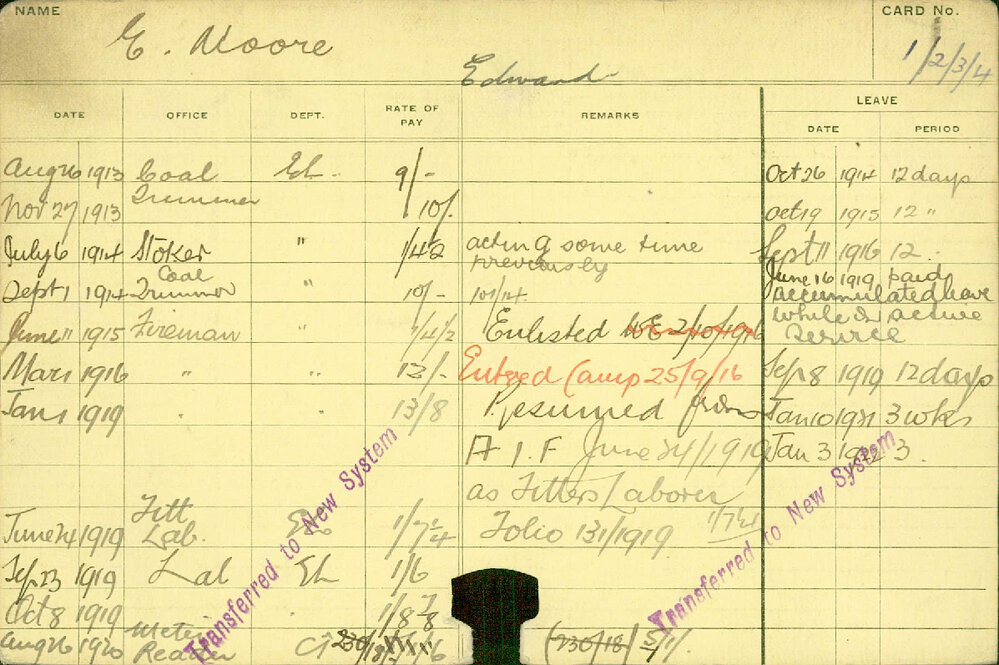 NAME
CARD No.
E. Moore
1/2/3/4
Edward
DATE OFFICE DEPT. RATE OF PAY REMARKS LEAVE
DATE PERIOD
Aug 26 1913 Coal EL. 9/- Oct 26 1914 12 days
Nov 27 1913 Trimmer 10/. Oct 19 1915 12 "
July 6 1914 Stoker " acting some time Sept 11 1916 12
previously
Sept 1 1914 Coal Trimmer " 10/- 10/1/14. June 16 1919 paid
accumulated leave
while on active
service
June 11 1915 Fireman " 1/4½ Enlisted 2/10/1916
Mar 1 1916 " " 12/- Entered Camp 25/9/16 Sep 8 1919 12 days
Jan 1 1919 " 13/8 Resumed from Jan 10 1921 3 wks
A I.F June 24/1919 Jan 3 1922 3.
as Fitters Laborer
June 24 1919 Fitt Lab. EL Folio 131/1919
Sep 23 1919 Lab EL 1/6
Oct 8 1919
Aug 26 1920 Meter Reader (230/18)
Transferred to New System
Transferred to New System